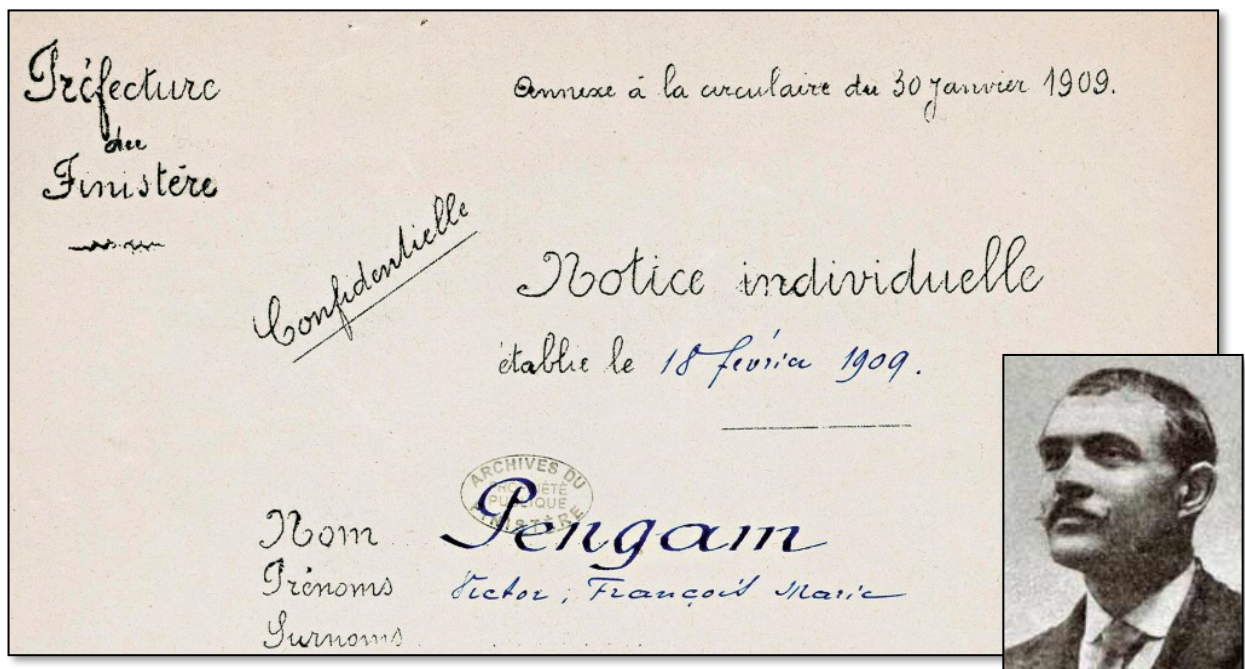 Préfecture
du
Finistère
Annexe à la circulaire du 30 Janvier 1909.
Confidentielle
Notice individuelle
établie le 18 février 1909.
ARCHIVES DU
PROPRIÉTÉ
PUBLIQUE
FINISTÈRE
Nom Pengam
Prénoms Victor, François Marie
Surnoms